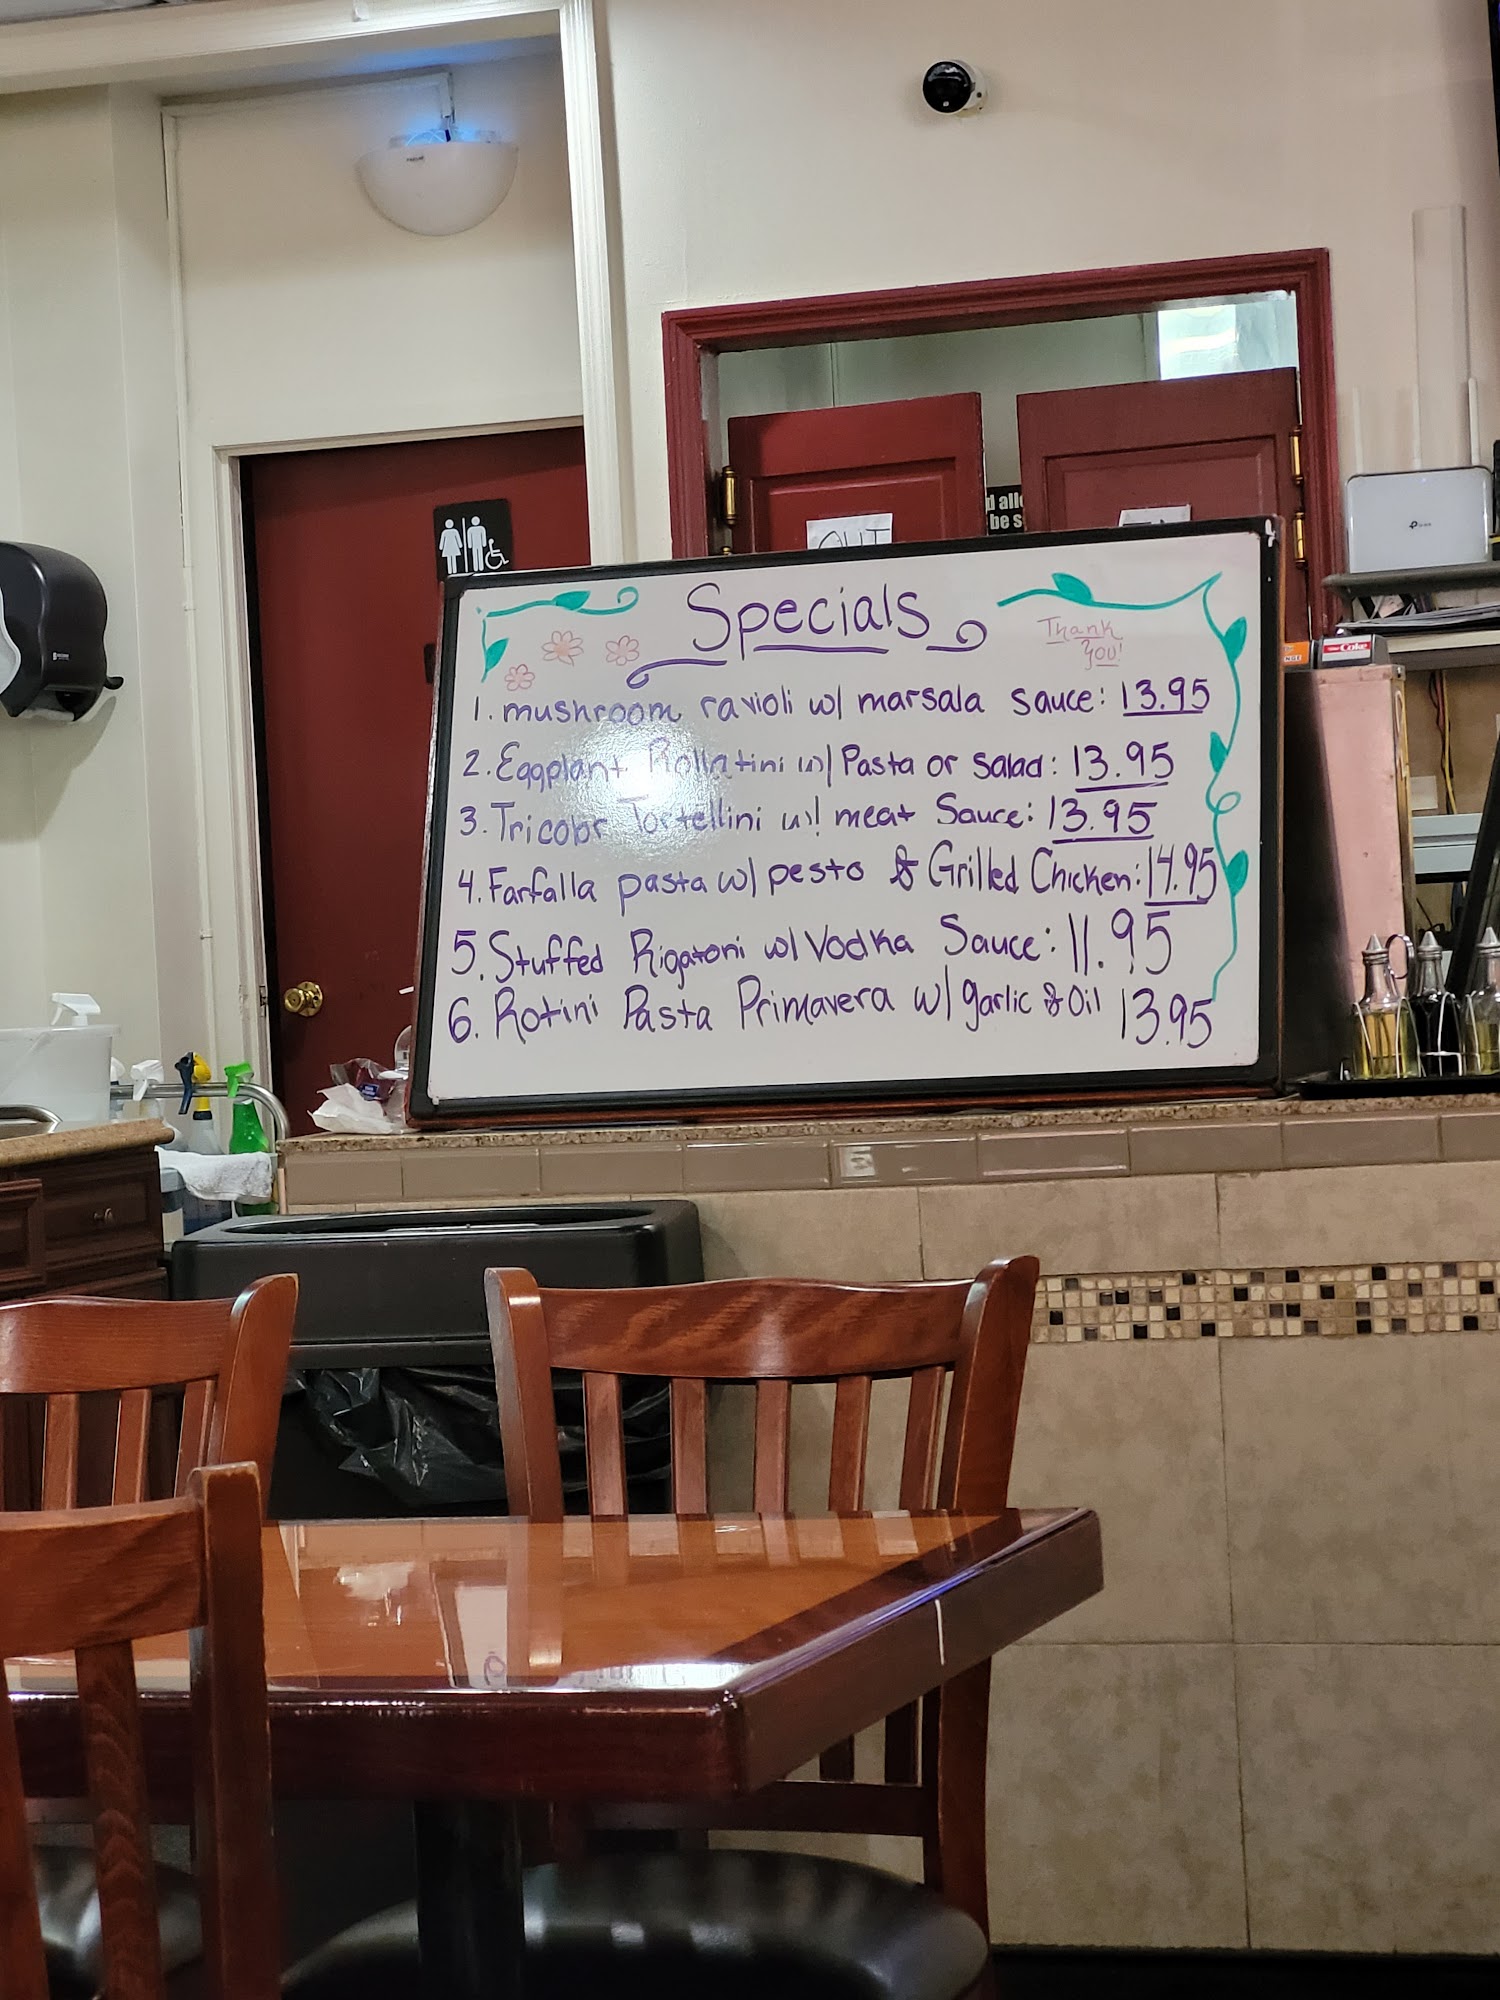 OUT
d all
be s
tp-link
Specials
Thank
You!
1. mushroom ravioli w/ marsala sauce: 13.95
2. Eggplant Rollatini w/ Pasta or salad: 13.95
3. Tricolor Tortellini w/ meat Sauce: 13.95
4. Farfalla pasta w/ pesto & Grilled Chicken: 14.95
5. Stuffed Rigatoni w/ Vodka Sauce: 11.95
6. Rotini Pasta Primavera w/ garlic & Oil 13.95
Coke